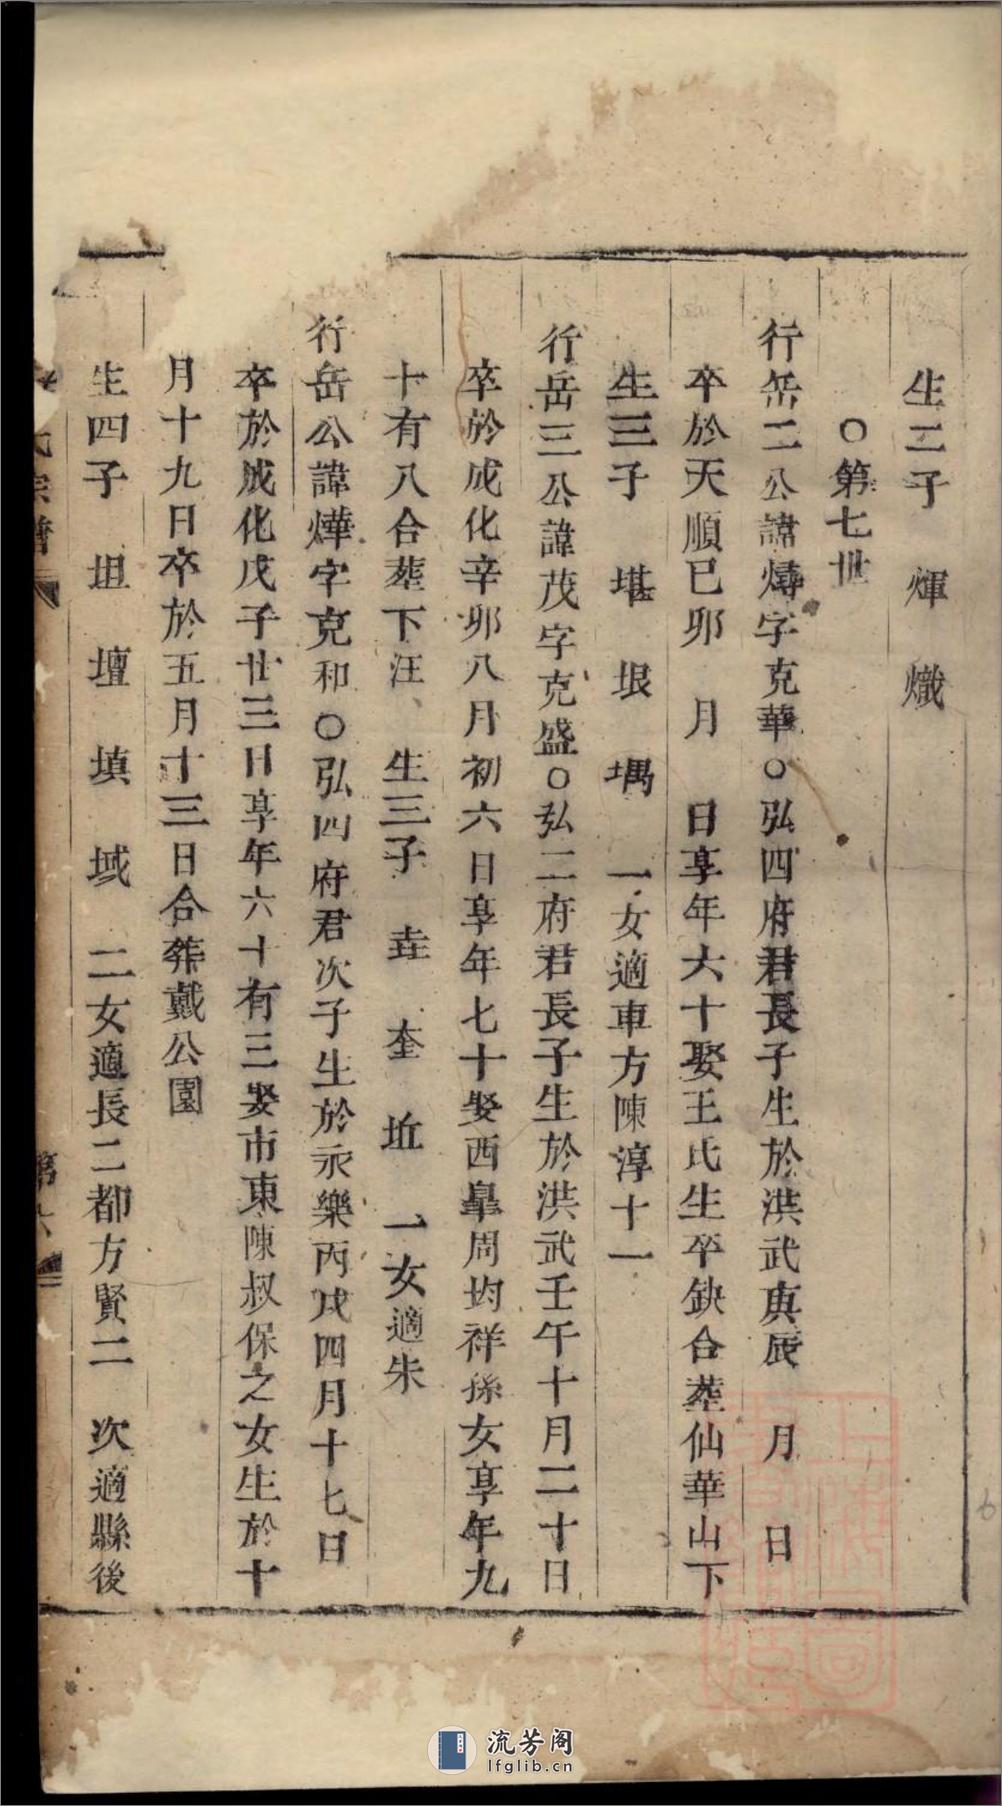 生二子　煇　熾
○第七世
行岳二公諱燽字克華○弘四府君長子生於洪武庚辰　月　日
卒於天順已卯　月　日享年六十娶王氏生卒缺合塟仙華山下
生三子　堪　垠　堣　一女適車方陳淳十一
行岳三公諱茂字克盛○弘二府君長子生於洪武壬午十月二十日
卒於成化辛卯八月初六日享年七十娶西皐周均祥孫女享年九
十有八合塟下汪　生三子　垚　奎　坵　一女適朱
行岳公諱燁字克和○弘四府君次子生於永樂丙戌四月十七日
卒於成化戊子廿三日享年六十有三娶市東陳叔保之女生於十
月十九日卒於五月十三日合葬戴公園
生四子　坦　壇　填　域　二女適長二都方賢二　次適縣後
氏宗譜　第六
流芳阁
lfglib.cn